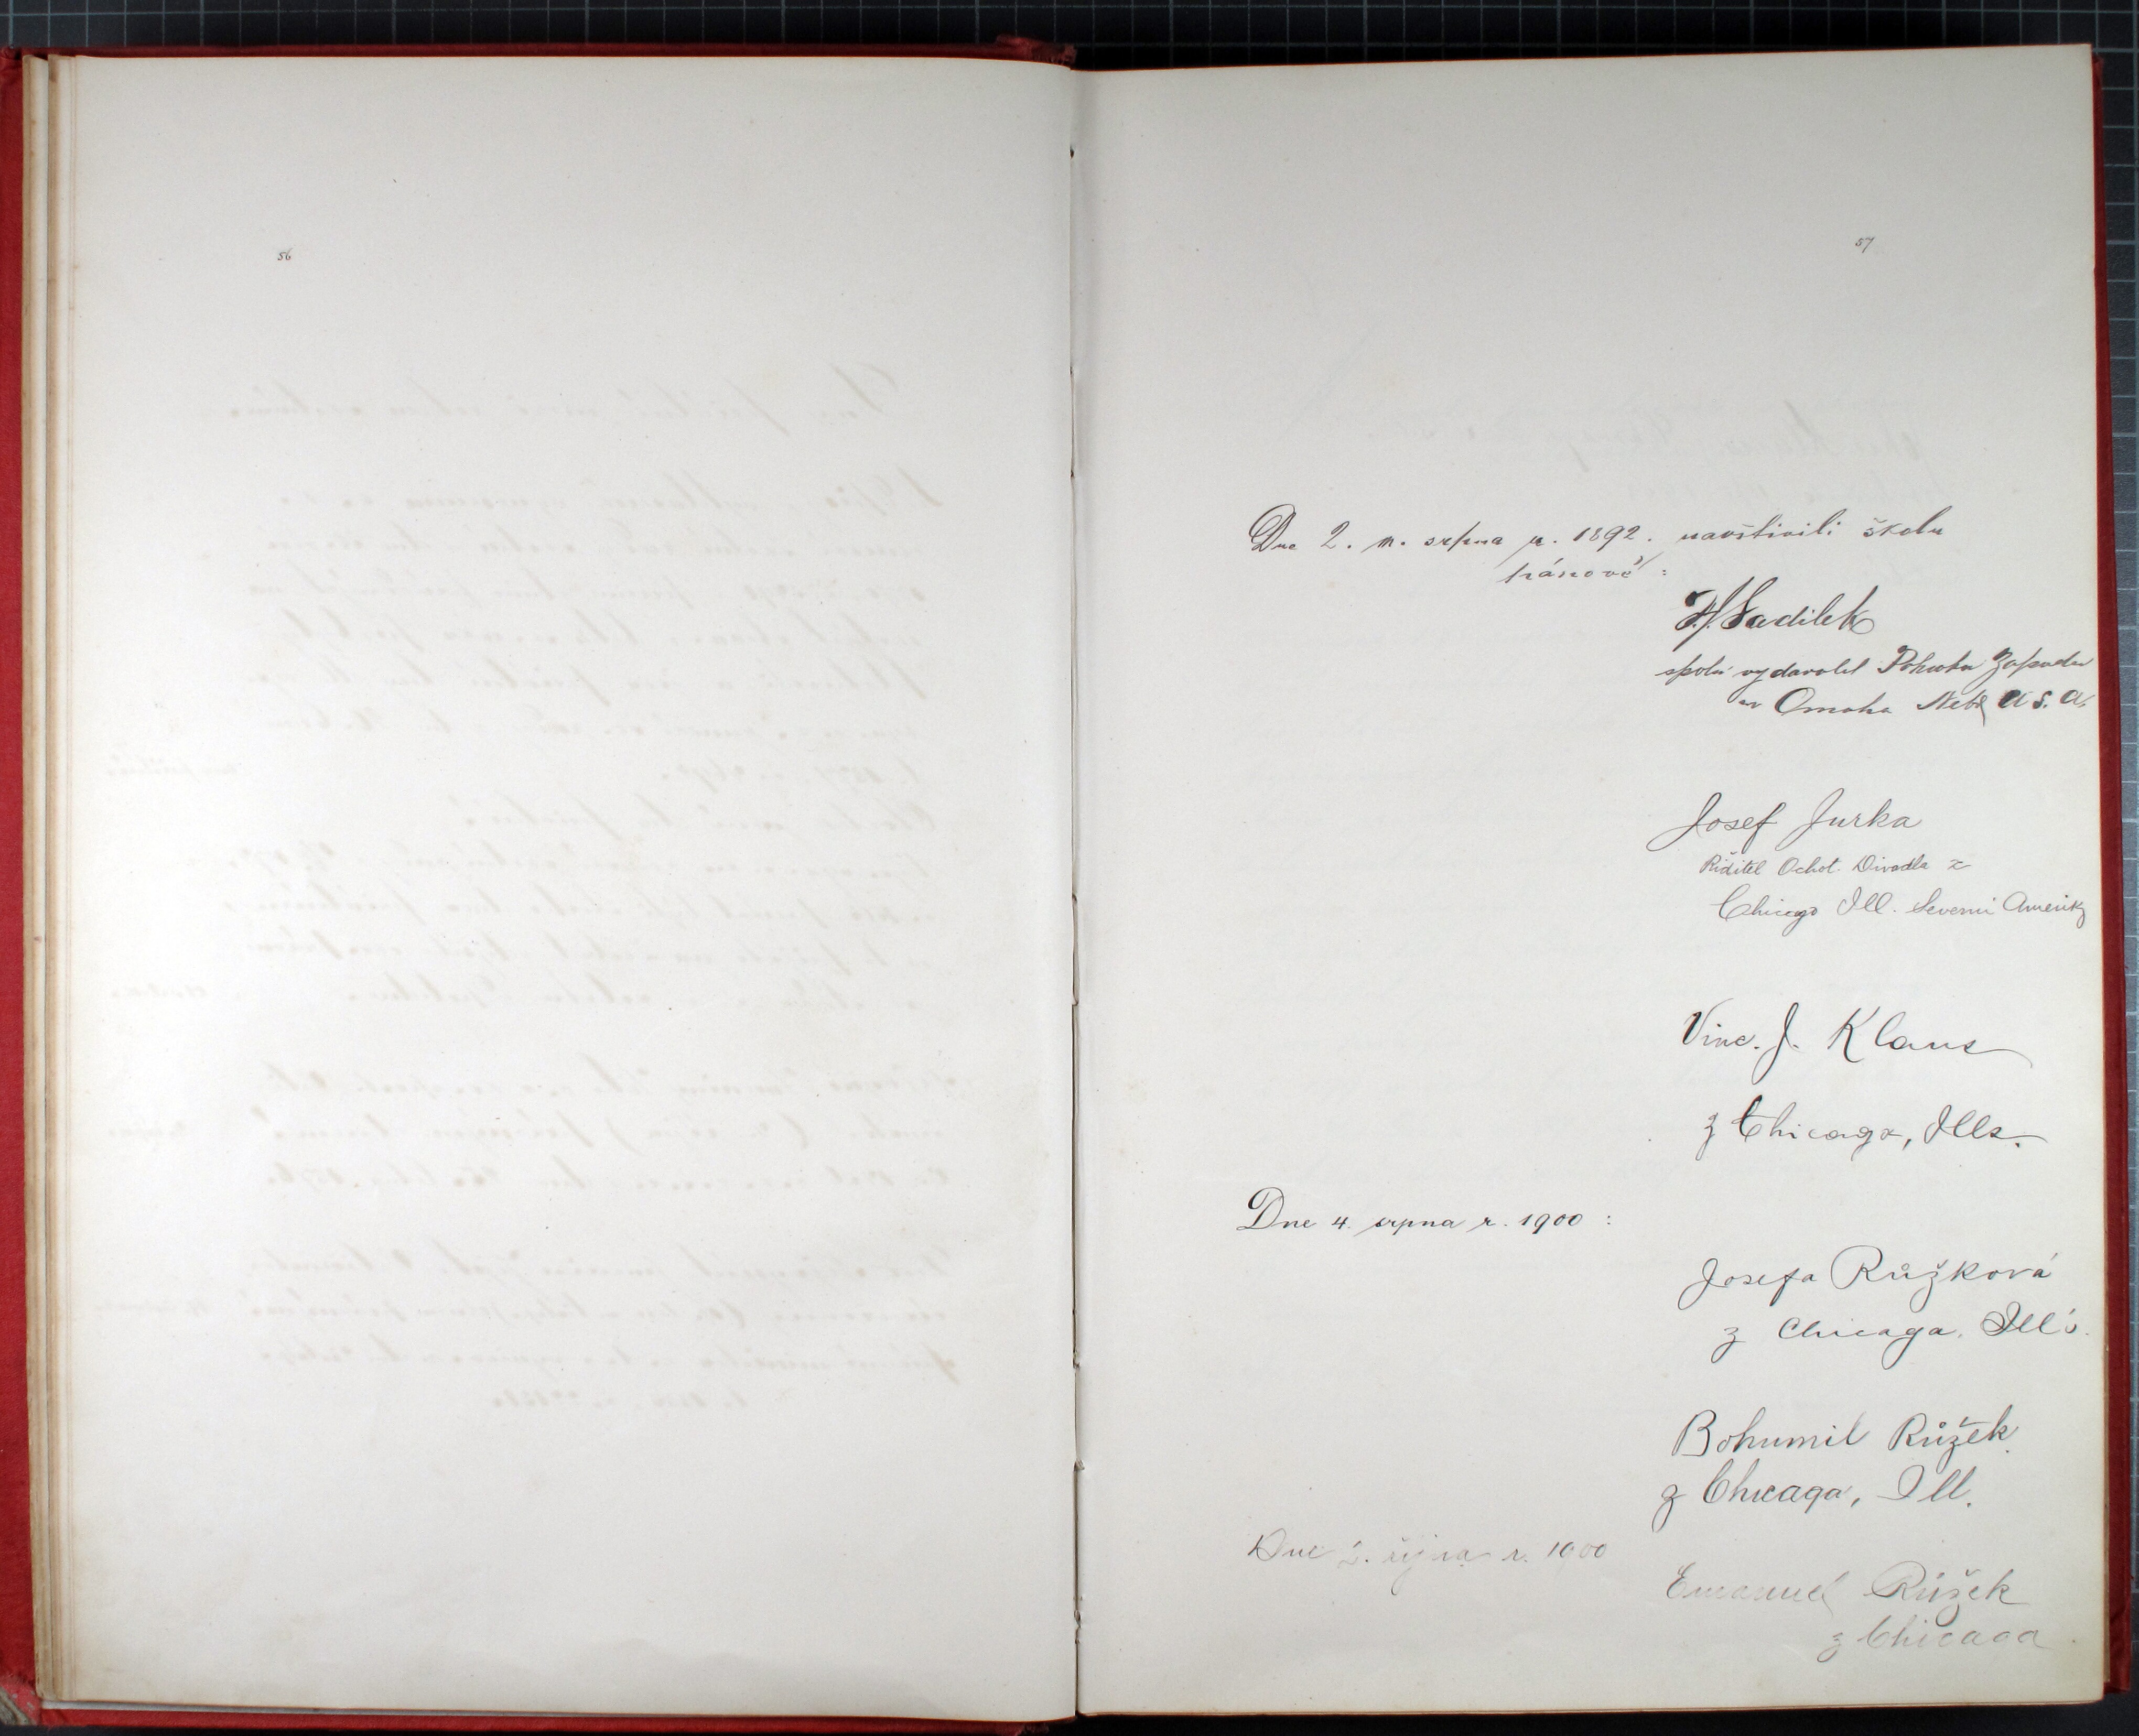 56
57
Dne 2. m. srpna r. 1892. navštivili školu
pánové:
F. J. Sadilek
spolu vydavatel Pokroku Zapadu
v Omaha Nebr U. S. A.
Josef Jurka
Riditel Ochot. Divadla z
Chicago Ill. Severni Ameriky
Vinc. J. Klaus
z Chicaga, Ills.
Dne 4. srpna r. 1900 :
Josefa Růžková
z Chicaga. Ill's.
Bohumil Růžek
z Chicaga, Ill.
Dne 2. října r. 1900
Emanuel Růžek
z Chicaga